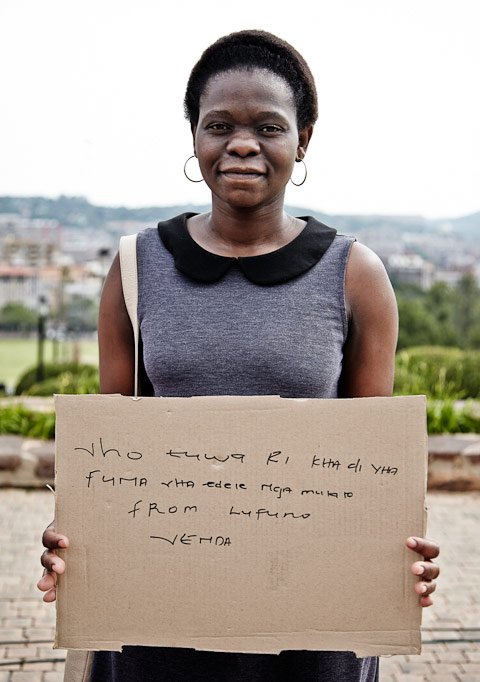 vho tuwa RI KHA di YHA
FUMA vha edele Nga mulalo
FROM LUFUNO
VENDA